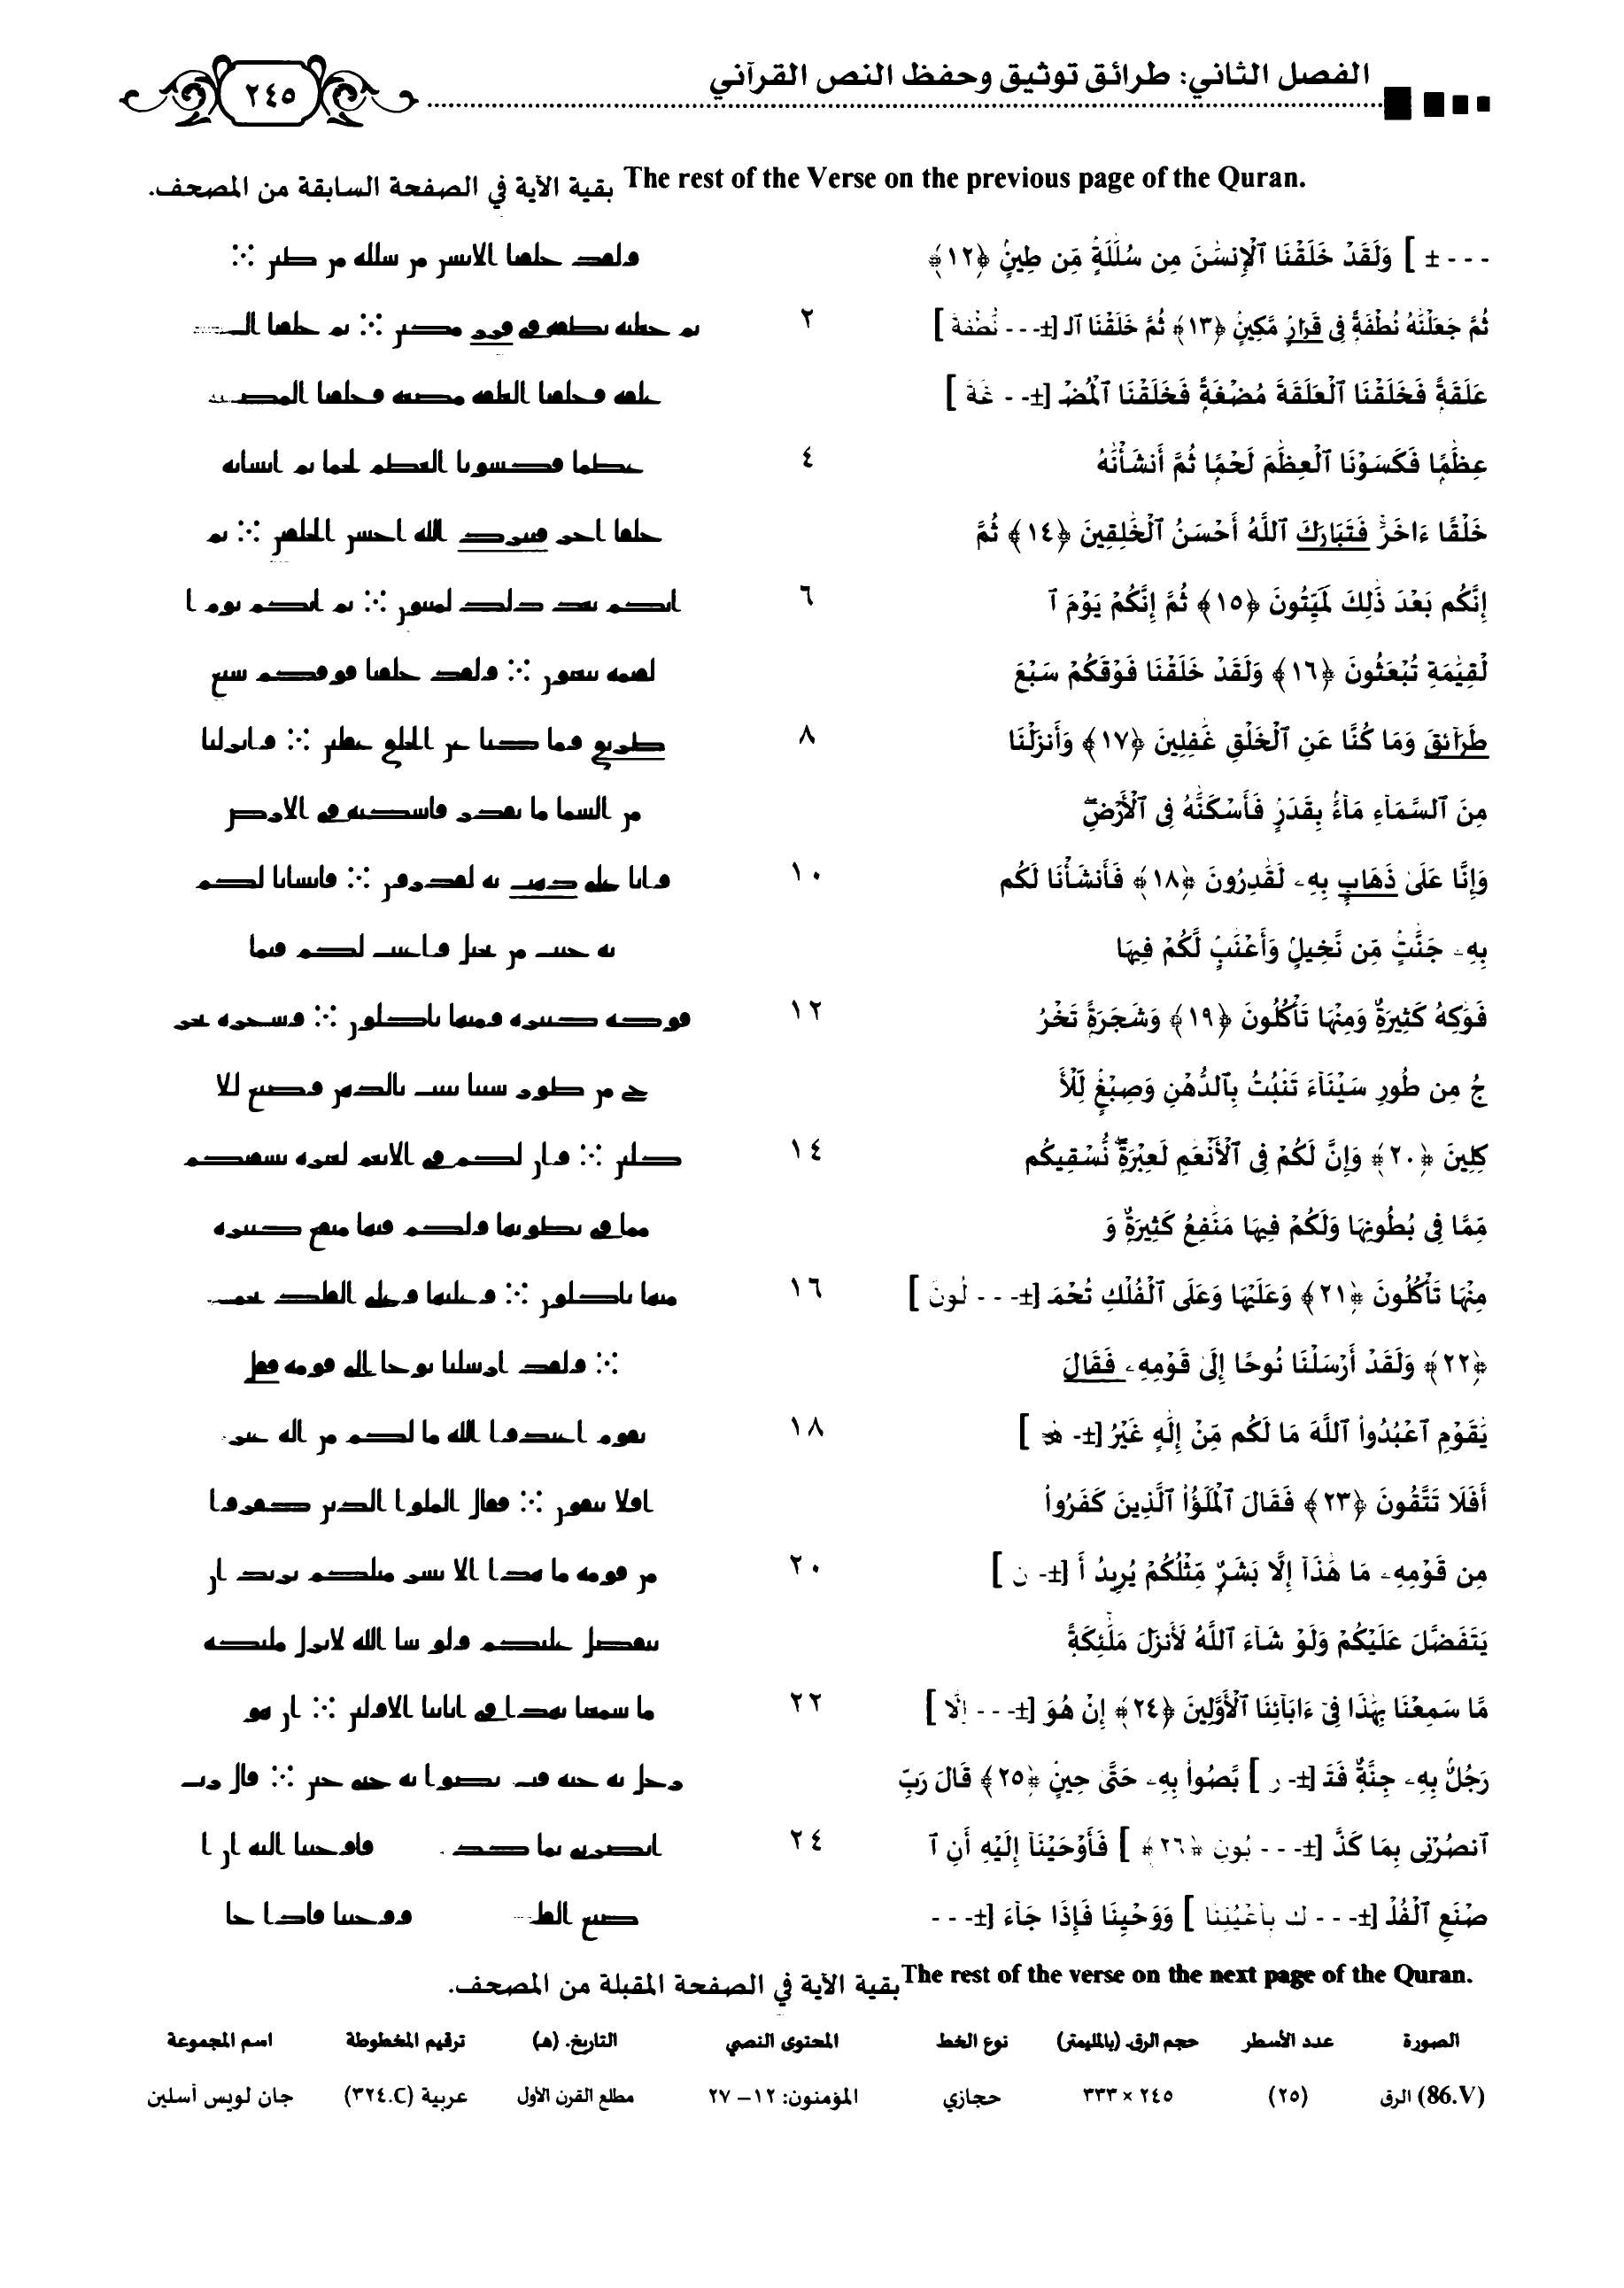 الفصل الثاني: طرائق توثيق وحفظ النص القرآني
٢٤٥
The rest of the Verse on the previous page of the Quran. بقية الآية في الصفحة السابقة من المصحف.
- - - ± ] وَلَقَدْ خَلَقْنَا ٱلْإِنسَٰنَ مِن سُلَٰلَةٍ مِّن طِينٍ ﴿١٢﴾ ولقد خلقنا الانسن من سللة من طين ⁘
ثُمَّ جَعَلْنَٰهُ نُطْفَةً فِى قَرَارٍ مَّكِينٍ ﴿١٣﴾ ثُمَّ خَلَقْنَا ٱلـ [±- - - نُّطْفَةَ ] ٢ ثم جعلنه نطفة في قرر مكين ⁘ ثم خلقنا الـ
عَلَقَةً فَخَلَقْنَا ٱلْعَلَقَةَ مُضْغَةً فَخَلَقْنَا ٱلْمُضْـ [±- - غَةَ ] علقة فخلقنا العلقة مضغة فخلقنا المضغـ
عِظَٰمًا فَكَسَوْنَا ٱلْعِظَٰمَ لَحْمًا ثُمَّ أَنشَأْنَٰهُ ٤ عظما فكسونا العظم لحما ثم انسانه
خَلْقًا ءَاخَرَ فَتَبَارَكَ ٱللَّهُ أَحْسَنُ ٱلْخَٰلِقِينَ ﴿١٤﴾ ثُمَّ خلقا اخر فتبرك الله احسن الخلقين ⁘ ثم
إِنَّكُم بَعْدَ ذَٰلِكَ لَمَيِّتُونَ ﴿١٥﴾ ثُمَّ إِنَّكُمْ يَوْمَ ٱ ٦ انكم بعد ذلك لميتون ⁘ ثم انكم يوم ا
لْقِيَٰمَةِ تُبْعَثُونَ ﴿١٦﴾ وَلَقَدْ خَلَقْنَا فَوْقَكُمْ سَبْعَ لقيمة تبعثون ⁘ ولقد خلقنا فوقكم سبع
طَرَآئِقَ وَمَا كُنَّا عَنِ ٱلْخَلْقِ غَٰفِلِينَ ﴿١٧﴾ وَأَنزَلْنَا ٨ طريق وما كنا عن الخلق غفلين ⁘ وانزلنا
مِنَ ٱلسَّمَآءِ مَآءًۢ بِقَدَرٍ فَأَسْكَنَّٰهُ فِى ٱلْأَرْضِۖ من السما ما بقدر فاسكنه في الارض
وَإِنَّا عَلَىٰ ذَهَابٍۭ بِهِۦ لَقَٰدِرُونَ ﴿١٨﴾ فَأَنشَأْنَا لَكُم ١٠ وانا على ذهب به لقدرون ⁘ فانسانا لكم
بِهِۦ جَنَّٰتٍ مِّن نَّخِيلٍ وَأَعْنَٰبٍ لَّكُمْ فِيهَا به جنت من نخيل واعنب لكم فيها
فَوَٰكِهُ كَثِيرَةٌ وَمِنْهَا تَأْكُلُونَ ﴿١٩﴾ وَشَجَرَةً تَخْرُ ١٢ فوكه كثيرة ومنها تاكلون ⁘ وسجرة تخر
جُ مِن طُورِ سَيْنَآءَ تَنۢبُتُ بِٱلدُّهْنِ وَصِبْغٍ لِّلْأَ ج من طور سينا تنبت بالدهن وصبغ للا
كِلِينَ ﴿٢٠﴾ وَإِنَّ لَكُمْ فِى ٱلْأَنْعَٰمِ لَعِبْرَةًۖ نُّسْقِيكُم ١٤ كلين ⁘ وان لكم في الانعم لعبرة نسقيكم
مِّمَّا فِى بُطُونِهَا وَلَكُمْ فِيهَا مَنَٰفِعُ كَثِيرَةٌ وَ مما في بطونها ولكم فيها منفع كثيرة
مِنْهَا تَأْكُلُونَ ﴿٢١﴾ وَعَلَيْهَا وَعَلَى ٱلْفُلْكِ تُحْمَـ [±- - - لُونَ ] ١٦ منها تاكلون ⁘ وعليها وعلى الفلك تحمـ
﴿٢٢﴾ وَلَقَدْ أَرْسَلْنَا نُوحًا إِلَىٰ قَوْمِهِۦ فَقَالَ ⁘ ولقد ارسلنا نوحا الى قومه فقل
يَٰقَوْمِ ٱعْبُدُوا۟ ٱللَّهَ مَا لَكُم مِّنْ إِلَٰهٍ غَيْرُ [±- هُۥ ] ١٨ يقوم اعبدوا الله ما لكم من اله غير
أَفَلَا تَتَّقُونَ ﴿٢٣﴾ فَقَالَ ٱلْمَلَؤُا۟ ٱلَّذِينَ كَفَرُوا۟ افلا تتقون ⁘ فقال الملوا الذين كفروا
مِن قَوْمِهِۦ مَا هَٰذَآ إِلَّا بَشَرٌ مِّثْلُكُمْ يُرِيدُ أَ [±- ن ] ٢٠ من قومه ما هذا الا بسر مثلكم يريد ان
يَتَفَضَّلَ عَلَيْكُمْ وَلَوْ شَآءَ ٱللَّهُ لَأَنزَلَ مَلَٰٓئِكَةً يتفضل عليكم ولو سا الله لانزل مليكة
مَّا سَمِعْنَا بِهَٰذَا فِىٓ ءَابَآئِنَا ٱلْأَوَّلِينَ ﴿٢٤﴾ إِنْ هُوَ [±- - - إِلَّا ] ٢٢ ما سمعنا بهذا في اباينا الاولين ⁘ ان هو
رَجُلٌۢ بِهِۦ جِنَّةٌ فَتَـ [±- ر ] بَّصُوا۟ بِهِۦ حَتَّىٰ حِينٍ ﴿٢٥﴾ قَالَ رَبِّ رجل به جنة فتـ بصوا به حتى حين ⁘ قال رب
ٱنصُرْنِى بِمَا كَذَّ [±- - - بُونِ ﴿٢٦﴾ ] فَأَوْحَيْنَآ إِلَيْهِ أَنِ ٱ ٢٤ انصرني بما كذ فاوحينا اليه ان ا
صْنَعِ ٱلْفُلْـ [±- - - ك بِأَعْيُنِنَا ] وَوَحْيِنَا فَإِذَا جَآءَ [±- - - صنع الفلـ ووحينا فاذا جا
The rest of the verse on the next page of the Quran. بقية الآية في الصفحة المقبلة من المصحف.
الصورة عدد الأسطر حجم الرق. (بالمليمتر) نوع الخط المحتوى النصي التاريخ. (هـ) ترقيم المخطوطة اسم المجموعة
(86.V) الرق (٢٥) ٢٤٥ × ٣٣٣ حجازي المؤمنون: ١٢– ٢٧ مطلع القرن الأول عربية (٣٢٤.C) جان لويس أسلين